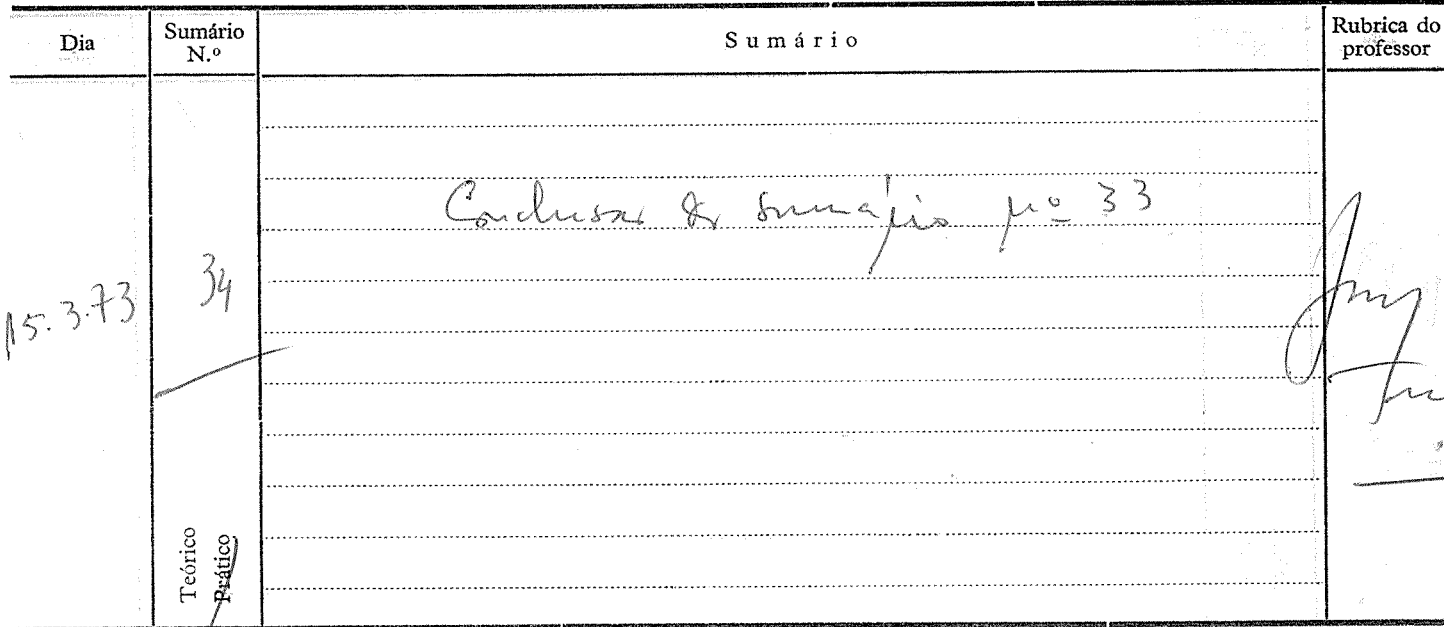 Dia
Sumário N.º
Sumário
Rubrica do professor
Conclusão do sumário nº 33
15.3.73
34
Teórico
Prático